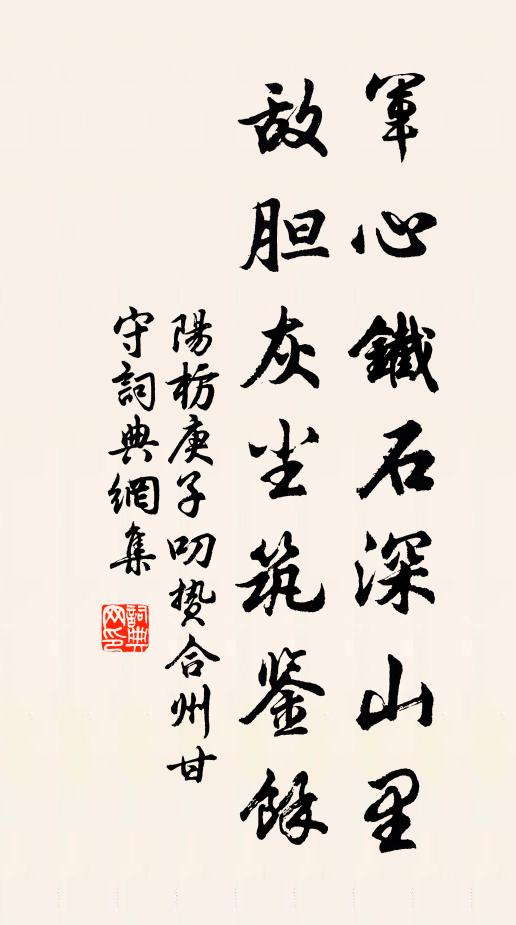 軍心鐵石深山里
敌胆灰尘筑鉴餘
陽枋庚子叨贽合州甘
守詞典網集
詞典網印